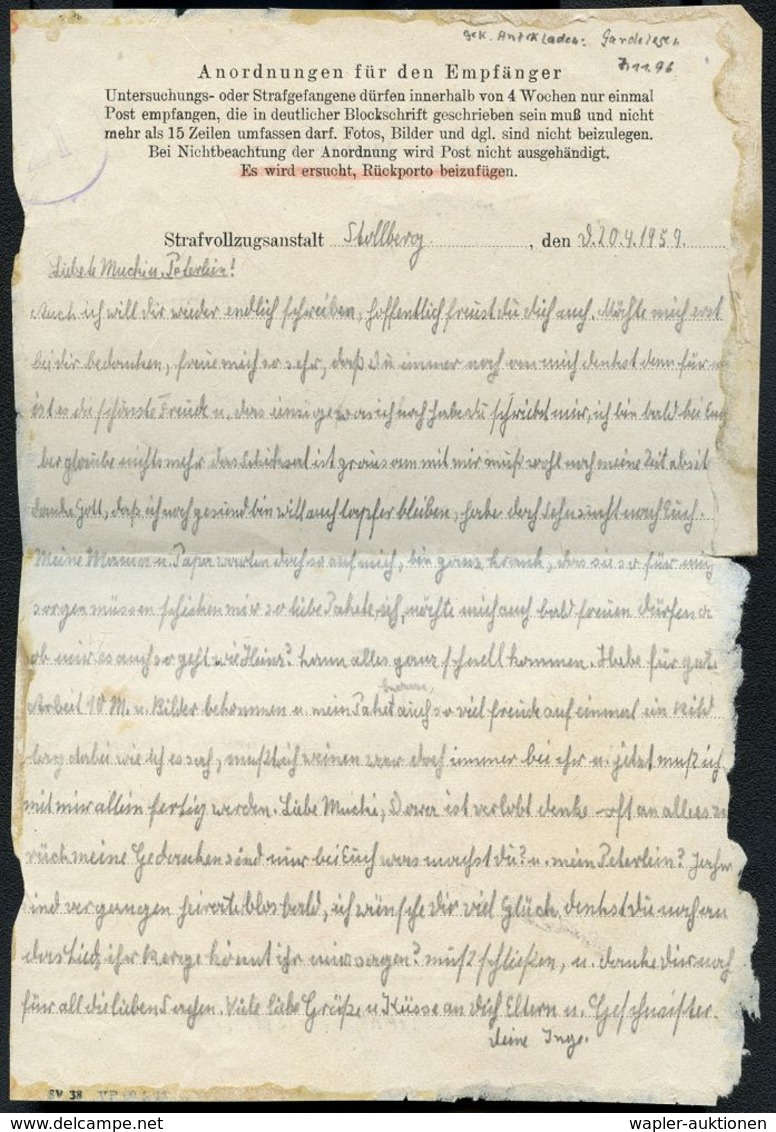 gek. Antikladen: Gardelegen
7.11.96
Anordnungen für den Empfänger
Untersuchungs- oder Strafgefangene dürfen innerhalb von 4 Wochen nur einmal
Post empfangen, die in deutlicher Blockschrift geschrieben sein muß und nicht
mehr als 15 Zeilen umfassen darf. Fotos, Bilder und dgl. sind nicht beizulegen.
Bei Nichtbeachtung der Anordnung wird Post nicht ausgehändigt.
Es wird ersucht, Rückporto beizufügen.
Strafvollzugsanstalt Stollberg, den d. 20.4.1959.
Liebste Muchi u. Peterlein!
Auch ich will dir wieder endlich schreiben, hoffentlich freust du dich auch. Möchte mich erst
bei dir bedanken, freue mich so sehr, daß Du immer noch an mich denkst denn für
ist es die schönste Freude u. das einzige was ich noch habe du schreibst mir, ich bin bald bei
glaube nichts mehr das Schiksal ist grausam mit mir muß wohl noch meine Zeit absit
danke Gott, daß ich noch gesund bin will auch tapfer bleiben, habe doch sehnsucht nach Euch.
Meine Mama u. Papa warten doch so auf mich, bin ganz krank, das sie so für
sorgen müssen schicken mir so liebe Pakete, ich möchte mich auch bald freuen dürfen
ob mir es auch so geht wie Heinz? kann alles ganz schnell kommen. Habe für gute
Arbeit 10 M. u. Bilder bekommen u. mein Paket auch so viel freude auf einmal ein Bild
lag dabei wie ich es sah, mußte ich weinen war doch immer bei ihr u. jetzt muß ich
mit mir allein fertig werden. Liebe Muchi, ist verlobt denke oft an alles zu
rück meine Gedanken sind nur bei Euch was machst du? u. mein Peterlein? Jahre
sind vergangen heirate blos bald, ich wünsche dir viel Glück, denkst du noch an
das Lied, ihr könnt ihr mir sagen? muß schließen, u. danke dir noch
für all die lieben Sachen. Viele liebe Grüße u. Küsse an dich Eltern u. Geschwister.
deine Inge.
SV 38
wapler-auktionen